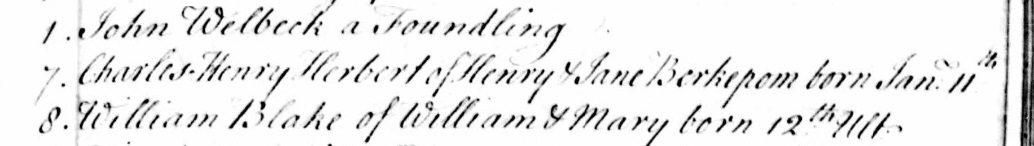 1. John Welbeck a Foundling
7. Charles Henry Herbert of Henry & Jane Berkepom born Jan. 11th
8. William Blake of William & Mary born 12th Ult